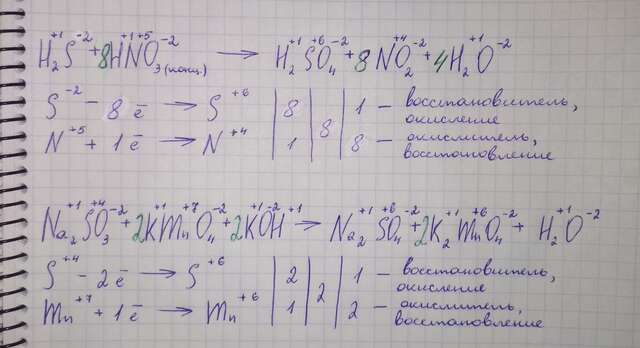 H₂⁺¹S⁻² + 8H⁺¹N⁺⁵O₃⁻² (конц.) → H₂⁺¹S⁺⁶O₄⁻² + 8N⁺⁴O₂⁻² + 4H₂⁺¹O⁻²
S⁻² - 8ē → S⁺⁶ | 8 | 8 | 1 - восстановитель,
окисление
N⁺⁵ + 1ē → N⁺⁴ | 1 | | 8 - окислитель,
восстановление
Na₂⁺¹S⁺⁴O₃⁻² + 2K⁺¹Mn⁺⁷O₄⁻² + 2KO⁻²H⁺¹ → Na₂⁺¹S⁺⁶O₄⁻² + 2K₂⁺¹Mn⁺⁶O₄⁻² + H₂⁺¹O⁻²
S⁺⁴ - 2ē → S⁺⁶ | 2 | 2 | 1 - восстановитель,
окисление
Mn⁺⁷ + 1ē → Mn⁺⁶ | 1 | | 2 - окислитель,
восстановление